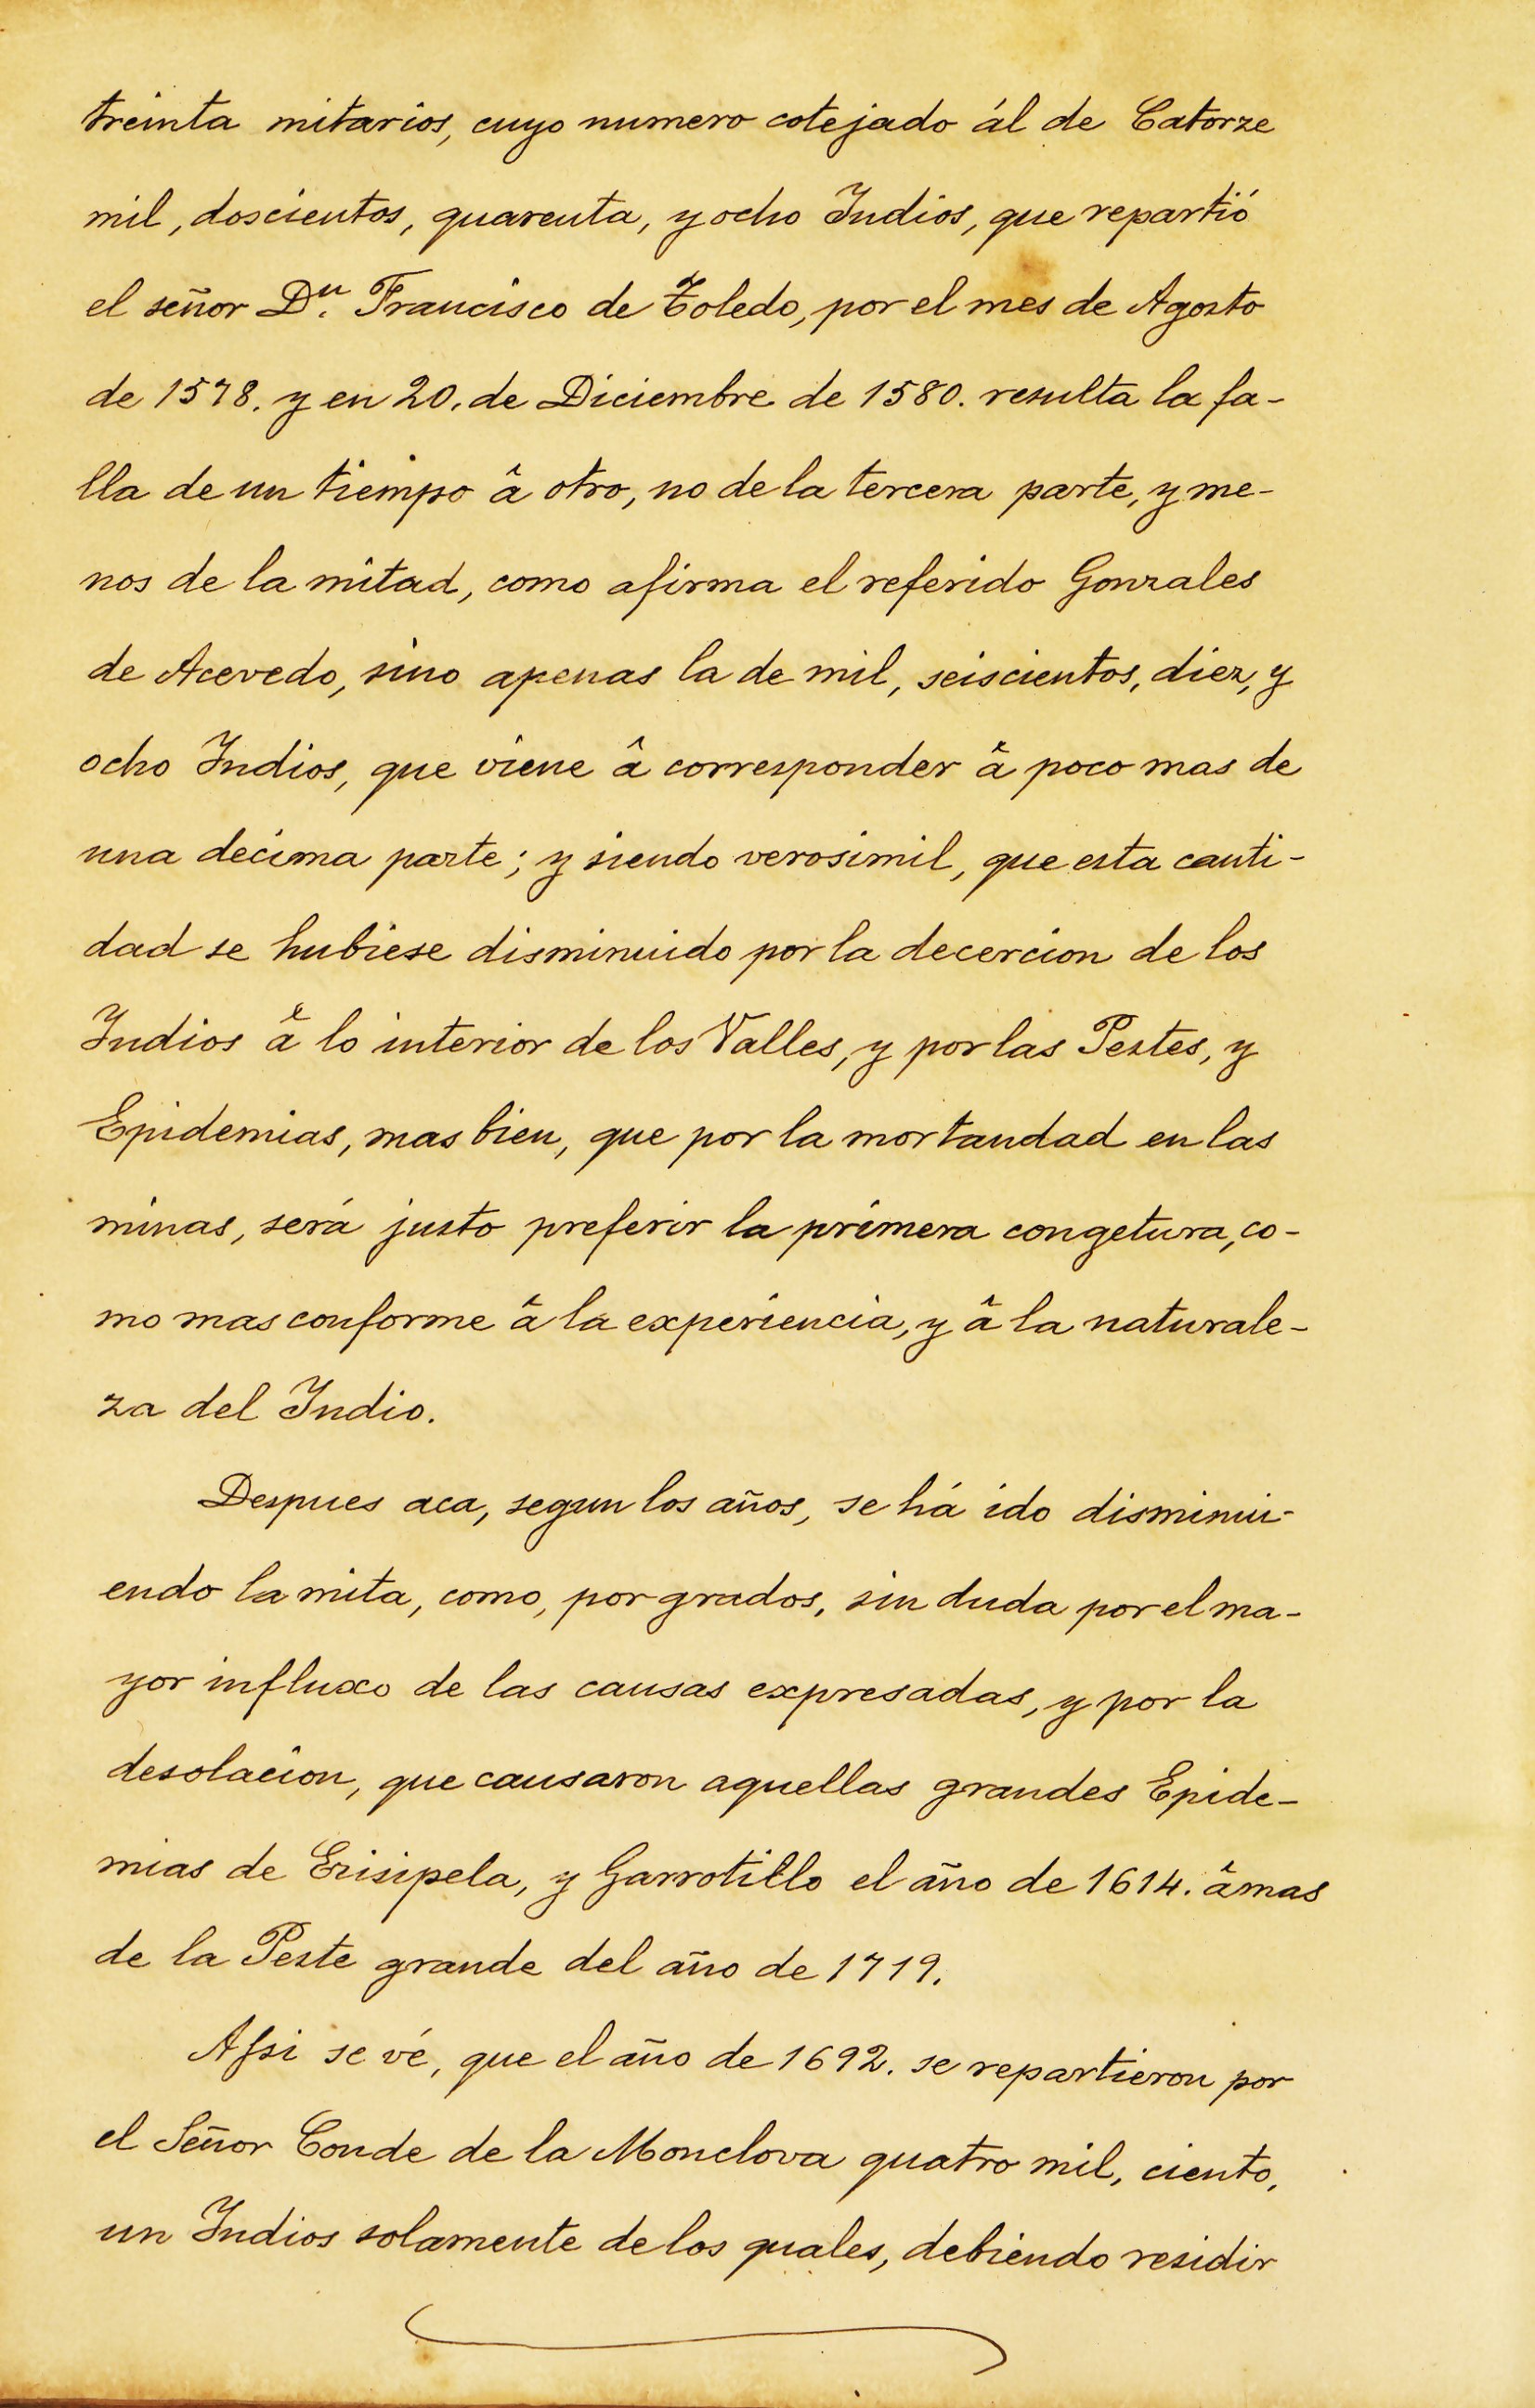 treinta mitarios, cuyo numero cotejado ál de Catorze
mil, doscientos, quarenta, y ocho Indios, que repartió
el señor Dn. Francisco de Toledo, por el mes de Agosto
de 1578. y en 20. de Diciembre de 1580. resulta la fa-
lla de un tiempo â otro, no de la tercera parte, y me-
nos de la mitad, como afirma el referido Gonzales
de Acevedo, sino apenas la de mil, seiscientos, diez, y
ocho Indios, que viene â corresponder â poco mas de
una decima parte; y siendo verosimil, que esta canti-
dad se hubiese disminuido por la decercion de los
Indios â lo interior de los Valles, y por las Pestes, y
Epidemias, mas bien, que por la mortandad en las
minas, será justo preferir la primera congetura, co-
mo mas conforme â la experiencia, y â la naturale-
za del Indio.
Despues aca, segun los años, se há ido disminui-
endo la mita, como, por grados, sin duda por el ma-
yor influxo de las causas expresadas, y por la
desolacion, que causaron aquellas grandes Epide-
mias de Erisipela, y Garrotillo el año de 1614. âmas
de la Peste grande del año de 1719.
Assi se vé, que el año de 1692. se repartieron por
el Señor Conde de la Monclova quatro mil, ciento,
un Indios solamente de los quales, debiendo residir